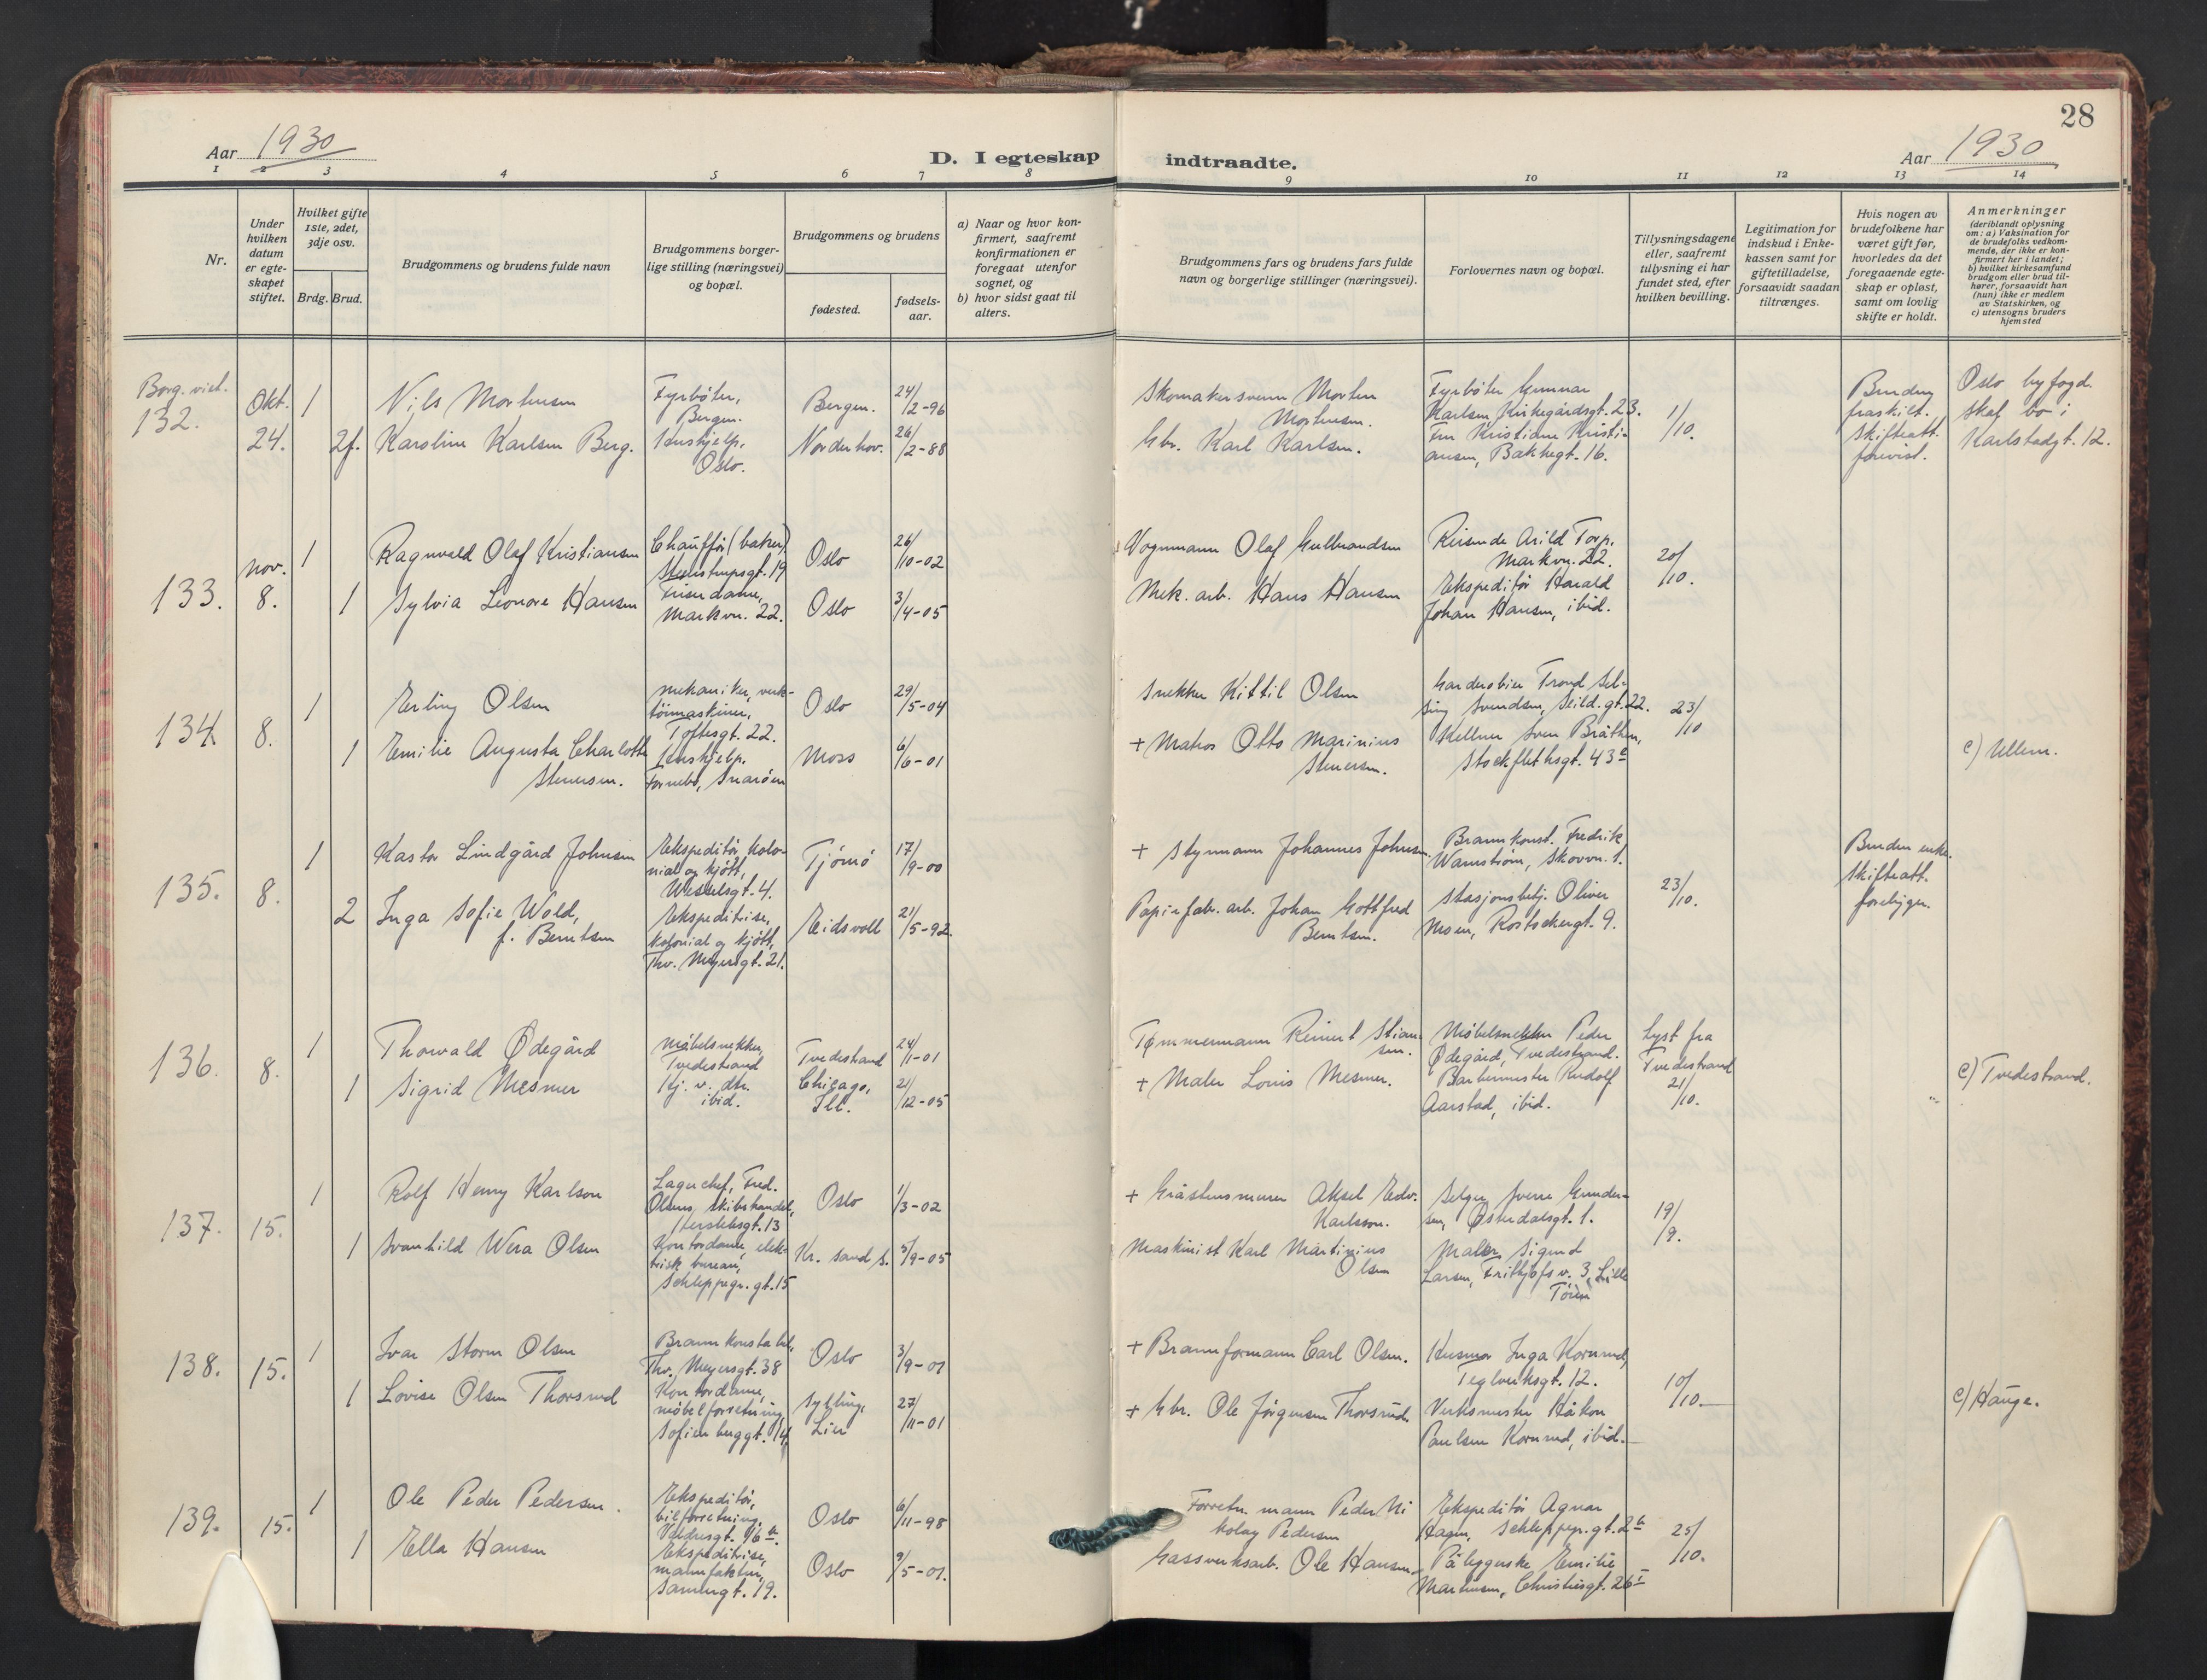 28
Aar 1930
D. I egteskap indtraadte.
Aar 1930
1 2 3 4 5 6 7 8 9 10 11 12 13 14
Nr.
Under hvilken datum er egte-skapet stiftet.
Hvilket gifte 1ste, 2det, 3dje osv.
Brdg. Brud.
Brudgommens og brudens fulde navn
Brudgommens borger-lige stilling (næringsvei) og bopæl.
Brudgommens og brudens
fødested.
fødsels-aar.
a) Naar og hvor kon-firmert, saafremt konfirmationen er foregaat utenfor sognet, og
b) hvor sidst gaat til alters.
Brudgommens fars og brudens fars fulde navn og borgerlige stillinger (næringsvei).
Forlovernes navn og bopæl.
Tillysningsdagene eller, saafremt tillysning ei har fundet sted, efter hvilken bevilling.
Legitimation for indskud i Enke-kassen samt for giftetilladelse, forsaavidt saadan tiltrænges.
Hvis nogen av brudefolkene har været gift før, hvorledes da det foregaaende egte-skap er opløst, samt om lovlig skifte er holdt.
Anmerkninger
(deriblandt oplysning om: a) Vaksination for de brudefolks vedkom-mende, der ikke er kon-firmert her i landet; b) hvilket kirkesamfund brudgom eller brud til-hører, forsaavidt han (hun) ikke er medlem av Statskirken, og c) utensogns bruders hjemsted
Borg. viet.
132.
Okt. 24.
1
Nils Mortensen
Fyrbøter, Bergen.
Bergen.
24/2-96
Skomakersvenn Morten Mortensen.
Fyrbøter Gunnar Karlsen, Kirkegårdsgt. 23.
1/10.
Bruden fraskilt. Skifteatt. forevist.
Oslo byfogd. Skal bo i Karlstadgt. 12.
2f.
Karoline Karlsen Berg.
Hushjelp, Oslo.
Norderhov.
26/2-88
Gbr. Karl Karlsen.
Fru Kristiane Kristiansen, Bakkegt. 16.
133.
nov. 8.
1
Ragnvald Olaf Kristiansen
Chauffør (baker)
Steenstrupsgt. 19
Oslo
26/10-02
Vognmann Olaf Gulbrandsen
Reisende Arild Torp, Markvn. 22.
20/10.
1
Sylvia Leonore Hansen
Frisørdame, Markvn. 22.
Oslo
3/4-05
Mek. arb. Hans Hansen
Ekspeditør Harald Johan Hansen, ibid.
134.
8.
1
Erling Olsen
mekaniker, verktöimaskiner, Toftesgt. 22.
Oslo
29/5-04
Snekker Kittil Olsen
Garderobier Trond Svendsen, Seild. gt. 22.
23/10
1
Emilie Augusta Charlotte Stenersen.
Hushjelp, Fornebo, Snarøen
Moss
6/6-01
+ Matros Otto Marinius Stenersen.
Kellner Sven Bråthen, Stockflethsgt. 43
c) Ullern.
135.
8.
1
Kastor Lindgård Johnsen
Ekspeditör, kolonial og kjött, Wesselsgt. 4.
Tjömö
17/9-00
+ Styrmann Johannes Johnsen.
Brannkonst. Fredrik Wannström, Skovvn. 1.
23/10.
Bruden enke. Skifteatt. foreligger.
2
Inga Sofie Wold, f. Berntsen
Ekspeditrise, kolonial og kjött, Thv. Meyersgt. 21.
Eidsvoll
21/5-92.
Papirfabr. arb. Johan Gottfred Berntsen.
Stasjonsbetj. Oliver Moen, Rostockergt. 9.
136.
8.
1
Thorvald Ødegård
Møbelsnekker, Tvedestrand
Tvedestrand
24/1-01
Tømmermann Reinert Stiansen.
Møbelsnekker Peder Ødegård, Tvedestrand.
Lyst fra Tvedestrand 21/10.
1
Sigrid Mesmer
Hj. v. dtr. ibid.
Chicago, Ill.
21/12-05
+ Maler Louis Mesmer.
Barbermester Rudolf Aarstad, ibid.
c) Tvedestrand.
137.
15.
1
Rolf Henry Karlson
Lagerchef, Fred. Olsens, skibshandel, Herslebsgt. 13
Oslo
1/3-02
+ Gråstensmurer Aksel Edv. Karlsson.
Selger Sverre Gundersen, Østerdalsgt. 1.
19/9.
1
Svanhild Wera Olsen
Kontordame, elektrisk bureau, Schleppegr. gt. 15
Kr. sand S.
5/9-05
Maskinist Karl Martinius Olsen
Maler Sigurd Larsen, Frithjofs v. 3, Lille Töien
138.
15.
1
Ivar Storm Olsen
Brannkonstabel, Thv. Meyersgt. 38
Oslo
3/9-01
+ Brannformann Carl Olsen.
Husmor Inga Kornrud, Teglverksgt. 12.
10/10.
1
Lovise Olsen Thorsrud
Kontordame, møbelforretning, Sofienberggt. 14
Sylling, Lier
27/11-01
+ Gbr. Ole Jörgensen Thorsrud.
Verksmester Håkon Paulsen Kornrud, ibid.
c) Hauge.
139.
15.
1
Ole Peder Pedersen.
Ekspeditör, bilforretning, Valdresgt. 16
Oslo
6/11-98
Forretn. mann Peder Nikolay Pedersen
Ekspeditör Agnar Hagen, Schleppegr. gt. 2
25/10.
1
Ella Hansen
Ekspeditrise, manufaktur, Sannergt. 19.
Oslo
9/5-01.
Gassverksarb. Ole Hansen
Påleggerske Emilie Martinsen, Christiesgt. 26